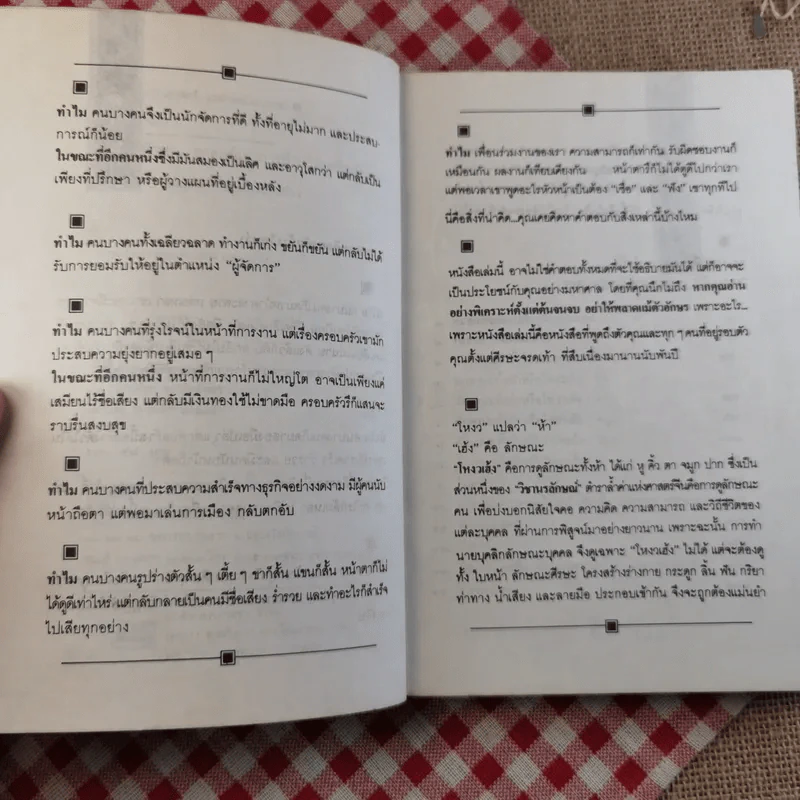 ทำไม คนบางคนจึงเป็นนักจัดการที่ดี ทั้งที่อายุไม่มาก และประสบ-
การณ์ก็น้อย
ในขณะที่อีกคนหนึ่งซึ่งมีมันสมองเป็นเลิศ และอาวุโสกว่า แต่กลับเป็น
เพียงที่ปรึกษา หรือผู้วางแผนที่อยู่เบื้องหลัง
ทำไม คนบางคนทั้งเฉลียวฉลาด ทำงานก็เก่ง ขยันก็ขยัน แต่กลับไม่ได้
รับการยอมรับให้อยู่ในตำแหน่ง “ผู้จัดการ”
ทำไม คนบางคนที่รุ่งโรจน์ในหน้าที่การงาน แต่เรื่องครอบครัวเขามัก
ประสบความยุ่งยากอยู่เสมอ ๆ
ในขณะที่อีกคนหนึ่ง หน้าที่การงานก็ไม่ใหญ่โต อาจเป็นเพียงแค่
เสมียนไร้ชื่อเสียง แต่กลับมีเงินทองใช้ไม่ขาดมือ ครอบครัวรึก็แสนจะ
ราบรื่นสงบสุข
ทำไม คนบางคนที่ประสบความสำเร็จทางธุรกิจอย่างงดงาม มีผู้คนนับ
หน้าถือตา แต่พอมาเล่นการเมือง กลับตกอับ
ทำไม คนบางคนรูปร่างตัวสั้น ๆ เตี้ย ๆ ขาก็สั้น แขนก็สั้น หน้าตาก็ไม่
ได้ดูดีเท่าไหร่ แต่กลับกลายเป็นคนมีชื่อเสียง ร่ำรวย และทำอะไรก็สำเร็จ
ไปเสียทุกอย่าง
ทำไม เพื่อนร่วมงานของเรา ความสามารถก็เท่ากัน รับผิดชอบงานก็
เหมือนกัน ผลงานก็เทียบเคียงกัน หน้าตารึก็ไม่ได้ดูดีไปกว่าเรา
แต่พอเวลาเขาพูดอะไรหัวหน้าเป็นต้อง “เชื่อ” และ “ฟัง” เขาทุกทีไป
นี่คือสิ่งที่น่าคิด...คุณเคยคิดหาคำตอบกับสิ่งเหล่านี้บ้างไหม
หนังสือเล่มนี้ อาจไม่ใช่คำตอบทั้งหมดที่จะใช้อธิบายมันได้ แต่ก็อาจจะ
เป็นประโยชน์กับคุณอย่างมหาศาล โดยที่คุณนึกไม่ถึง หากคุณอ่าน
อย่างพิเคราะห์ตั้งแต่ต้นจนจบ อย่าให้พลาดแม้ตัวอักษร เพราะอะไร...
เพราะหนังสือเล่มนี้คือหนังสือที่พูดถึงตัวคุณและทุก ๆ คนที่อยู่รอบตัว
คุณตั้งแต่ศีรษะจรดเท้า ที่สืบเนื่องมานานนับพันปี
“โหงว” แปลว่า “ห้า”
“เฮ้ง” คือ ลักษณะ
“โหงวเฮ้ง” คือการดูลักษณะทั้งห้า ได้แก่ หู คิ้ว ตา จมูก ปาก ซึ่งเป็น
ส่วนหนึ่งของ “วิชานรลักษณ์” ตำราล้ำค่าแห่งศาสตร์จีนคือการดูลักษณะ
คน เพื่อบ่งบอกนิสัยใจคอ ความคิด ความสามารถ และวิถีชีวิตของ
แต่ละบุคคล ที่ผ่านการพิสูจน์มาอย่างยาวนาน เพราะฉะนั้น การทำ
นายบุคลิกลักษณะบุคคล จึงดูเฉพาะ “โหงวเฮ้ง” ไม่ได้ แต่จะต้องดู
ทั้ง ใบหน้า ลักษณะศีรษะ โครงสร้างร่างกาย กระดูก ลิ้น ฟัน กริยา
ท่าทาง น้ำเสียง และลายมือ ประกอบเข้ากัน จึงจะถูกต้องแม่นยำ